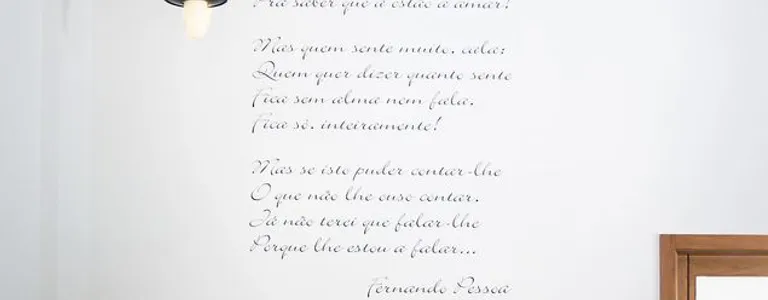 Pra saber que a estão a amar!
Mas quem sente muito, cala;
Quem quer dizer quanto sente
Fica sem alma nem fala,
Fica só, inteiramente!
Mas se isto puder contar-lhe
O que não lhe ouso contar,
Já não terei que falar-lhe
Porque lhe estou a falar...
Fernando Pessoa